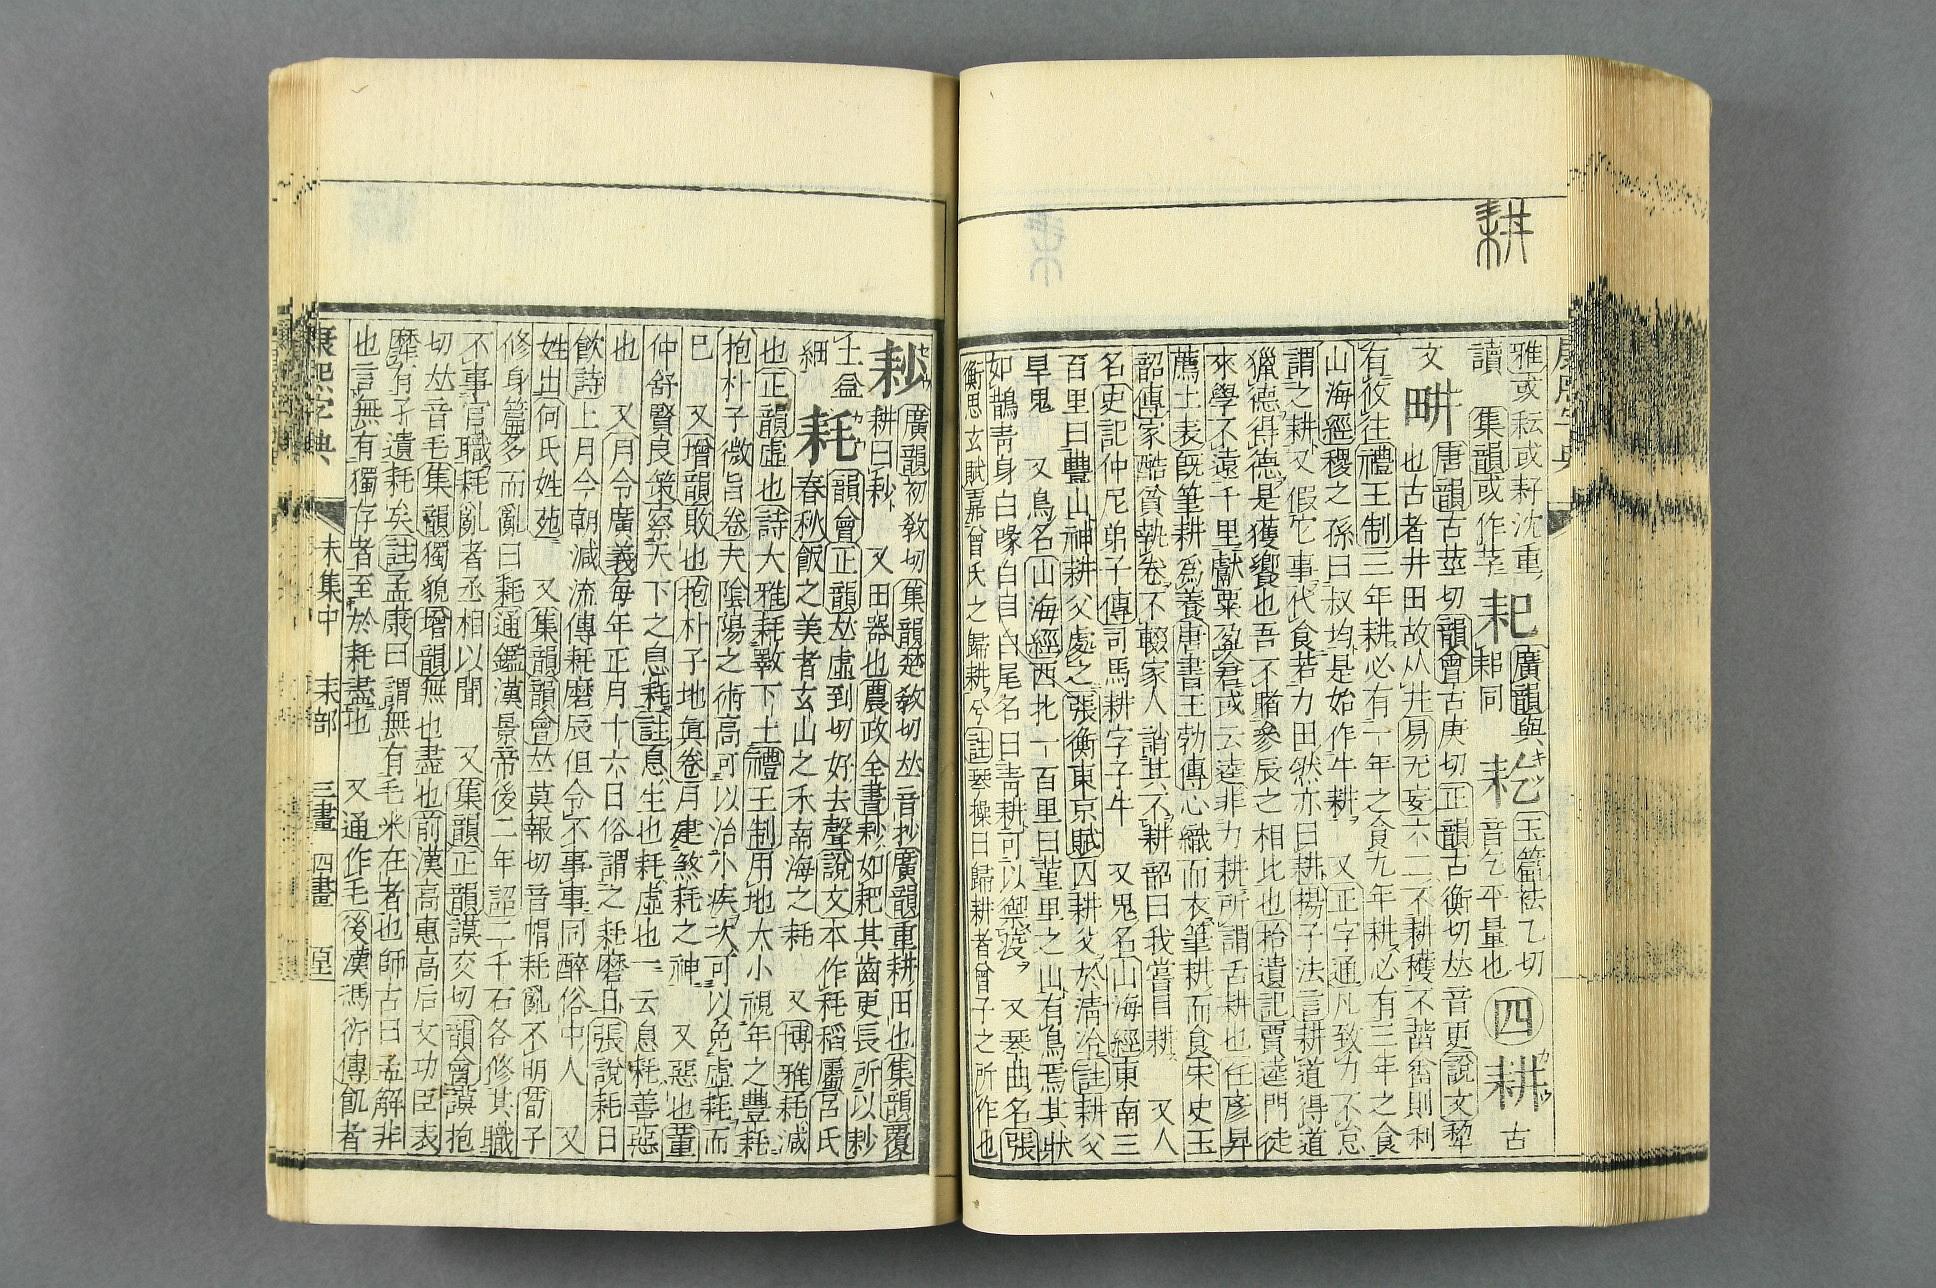 耕
雅或耘或耔沈重
讀 集韻或作芓 耜同 耛 廣韻與 耔 玉篇袪乙切
音乞平量也 四 耕 古
文 畊 唐韻古莖切韻會古庚切正韻古衡切𠀤音更說文犂
也古者井田故从井易无妄六二不耕穫不菑畬則利
有攸往禮王制三年耕必有一年之食九年耕必有三年之食
山海經稷之孫曰叔均是始作牛耕 又正字通凡致力不怠
謂之耕又假它事代食若力田然亦曰耕揚子法言耕道得道
獵德得德是獲饗也吾不睹參辰之相比也拾遺記賈逵門徒
來學不遠千里獻粟盈倉或云逵非力耕所謂舌耕也任彥昇
薦士表旣筆耕爲養唐書王勃傳心織而衣筆耕而食宋史王
韶傳家酷貧執卷不輟家人誚其不耕韶曰我嘗目耕 又人
名史記仲尼弟子傳司馬耕字子牛 又鬼名山海經東南三
百里曰豐山神耕父處之張衡東京賦囚耕父於淸泠註耕父
旱鬼 又鳥名山海經西北一百里曰菫里之山有鳥焉其狀
如鵲靑身白喙白目白尾名曰靑耕可以禦疫 又琴曲名張
衡思玄賦嘉曾氏之歸耕兮註琴操曰歸耕者曾子之所作也
耖 廣韻初敎切集韻楚敎切𠀤音抄廣韻重耕田也集韻覆
耕曰耖 又田器也農政全書耖如耙其齒更長所以耖
土益
細 耗 韻會正韻𠀤虛到切好去聲說文本作秏稻屬呂氏
春秋飯之美者玄山之禾南海之耗 又博雅耗減
也正韻虛也詩大雅耗斁下土禮王制用地大小視年之豐耗
抱朴子微旨卷夫陰陽之術高可以治小疾次可以免虛耗而
巳 又增韻敗也抱朴子地眞卷月建煞耗之神 又惡也董
仲舒賢良策察天下之息耗註息生也耗虛也一云息耗善惡
也 又月令廣義每年正月十六日俗謂之耗磨日張說耗日
飮詩上月今朝減流傳耗磨辰但令不事事同醉俗中人 又
姓出何氏姓苑 又集韻韻會𠀤莫報切音帽耗亂不明荀子
修身篇多而亂曰耗通鑑漢景帝後二年詔二千石各修其職
不事官職耗亂者丞相以聞 又集韻正韻謨交切韻會謨抱
切𠀤音毛集韻獨貌增韻無也盡也前漢高惠高后文功臣表
靡有孑遺耗矣註孟康曰謂無有毛米在者也師古曰孟解非
也言無有獨存者至於耗盡也 又通作毛後漢馮衍傳飢者
康熙字典 未集中 耒部 三畫 四畫